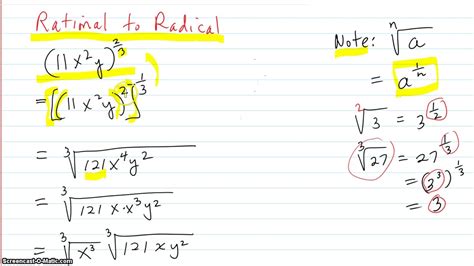 Rational to Radical
(11x²y)^(2/3)
= [(11x²y)²]^(1/3)
= ∛(121x⁴y²)
= ∛(121x·x³y²)
= ∛(x³) ∛(121xy²)
Note: ⁿ√a
= a^(1/n)
²√3 = 3^(1/2)
∛27 = 27^(1/3)
= (3³)^(1/3)
= 3
Screencast-O-Matic.com